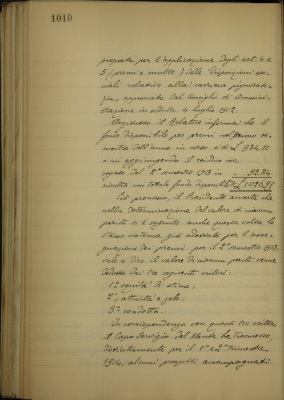 1010
proposte per l'applicazione degli art. 4 e
5 (premi e multe) delle Disposizioni
relative alla carriera
approvate dal Consiglio di Ammini-
strazione in seduta 4 luglio 1912.
Anzitutto il Relatore informa che il
fondo disponibile per premi nel primo se-
mestre dell'anno in corso è di £ 934.11
e aggiungendo il residuo
del 2° semestre 1913 in
risulta un totale fondo disponibile
Ciò premesso, il Presidente avverte che
nella determinazione del valore di ciascun
perito si è seguito anche questa volta lo
stesso sistema già adottato per l'asse-
gnazione dei premi per il 2° semestre 1913,
vale a dire il valore di ciascun perito venne
dedotto dai tre seguenti criteri:
1° equità di stima;
2° attività e zelo;
3° condotta.
In corrispondenza con questi tre criteri,
il Capo Servizio del Monte ha trasmesso,
distintamente per il 1° e 2° trimestre
1914, alcuni prospetti accompagnati